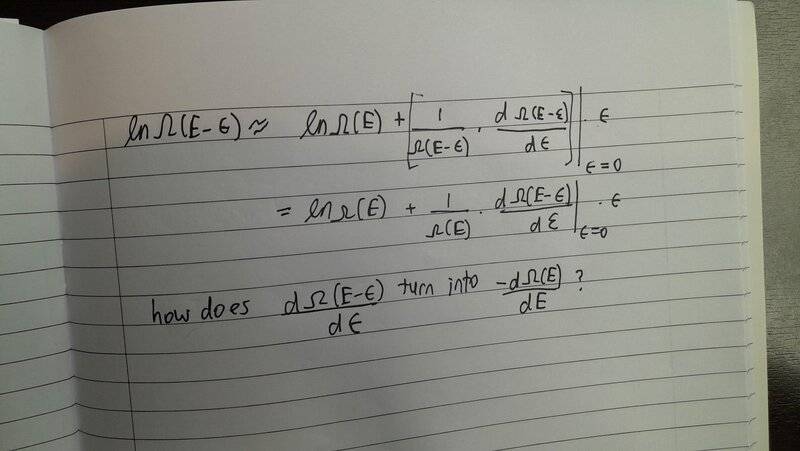 ln Ω(E-ϵ) ≈ ln Ω(E) + [1/Ω(E-ϵ) · dΩ(E-ϵ)/dϵ]|ϵ=0 · ϵ
= ln Ω(E) + 1/Ω(E) · dΩ(E-ϵ)/dϵ|ϵ=0 · ϵ
how does dΩ(E-ϵ)/dϵ turn into -dΩ(E)/dE ?